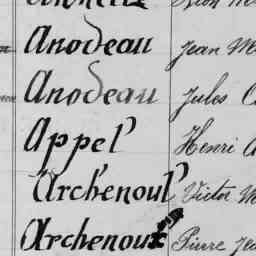 Anodeau Jean M
Anodeau Jules
Appel Henri
Archenoul Victor M
Archenoul Pierre Je